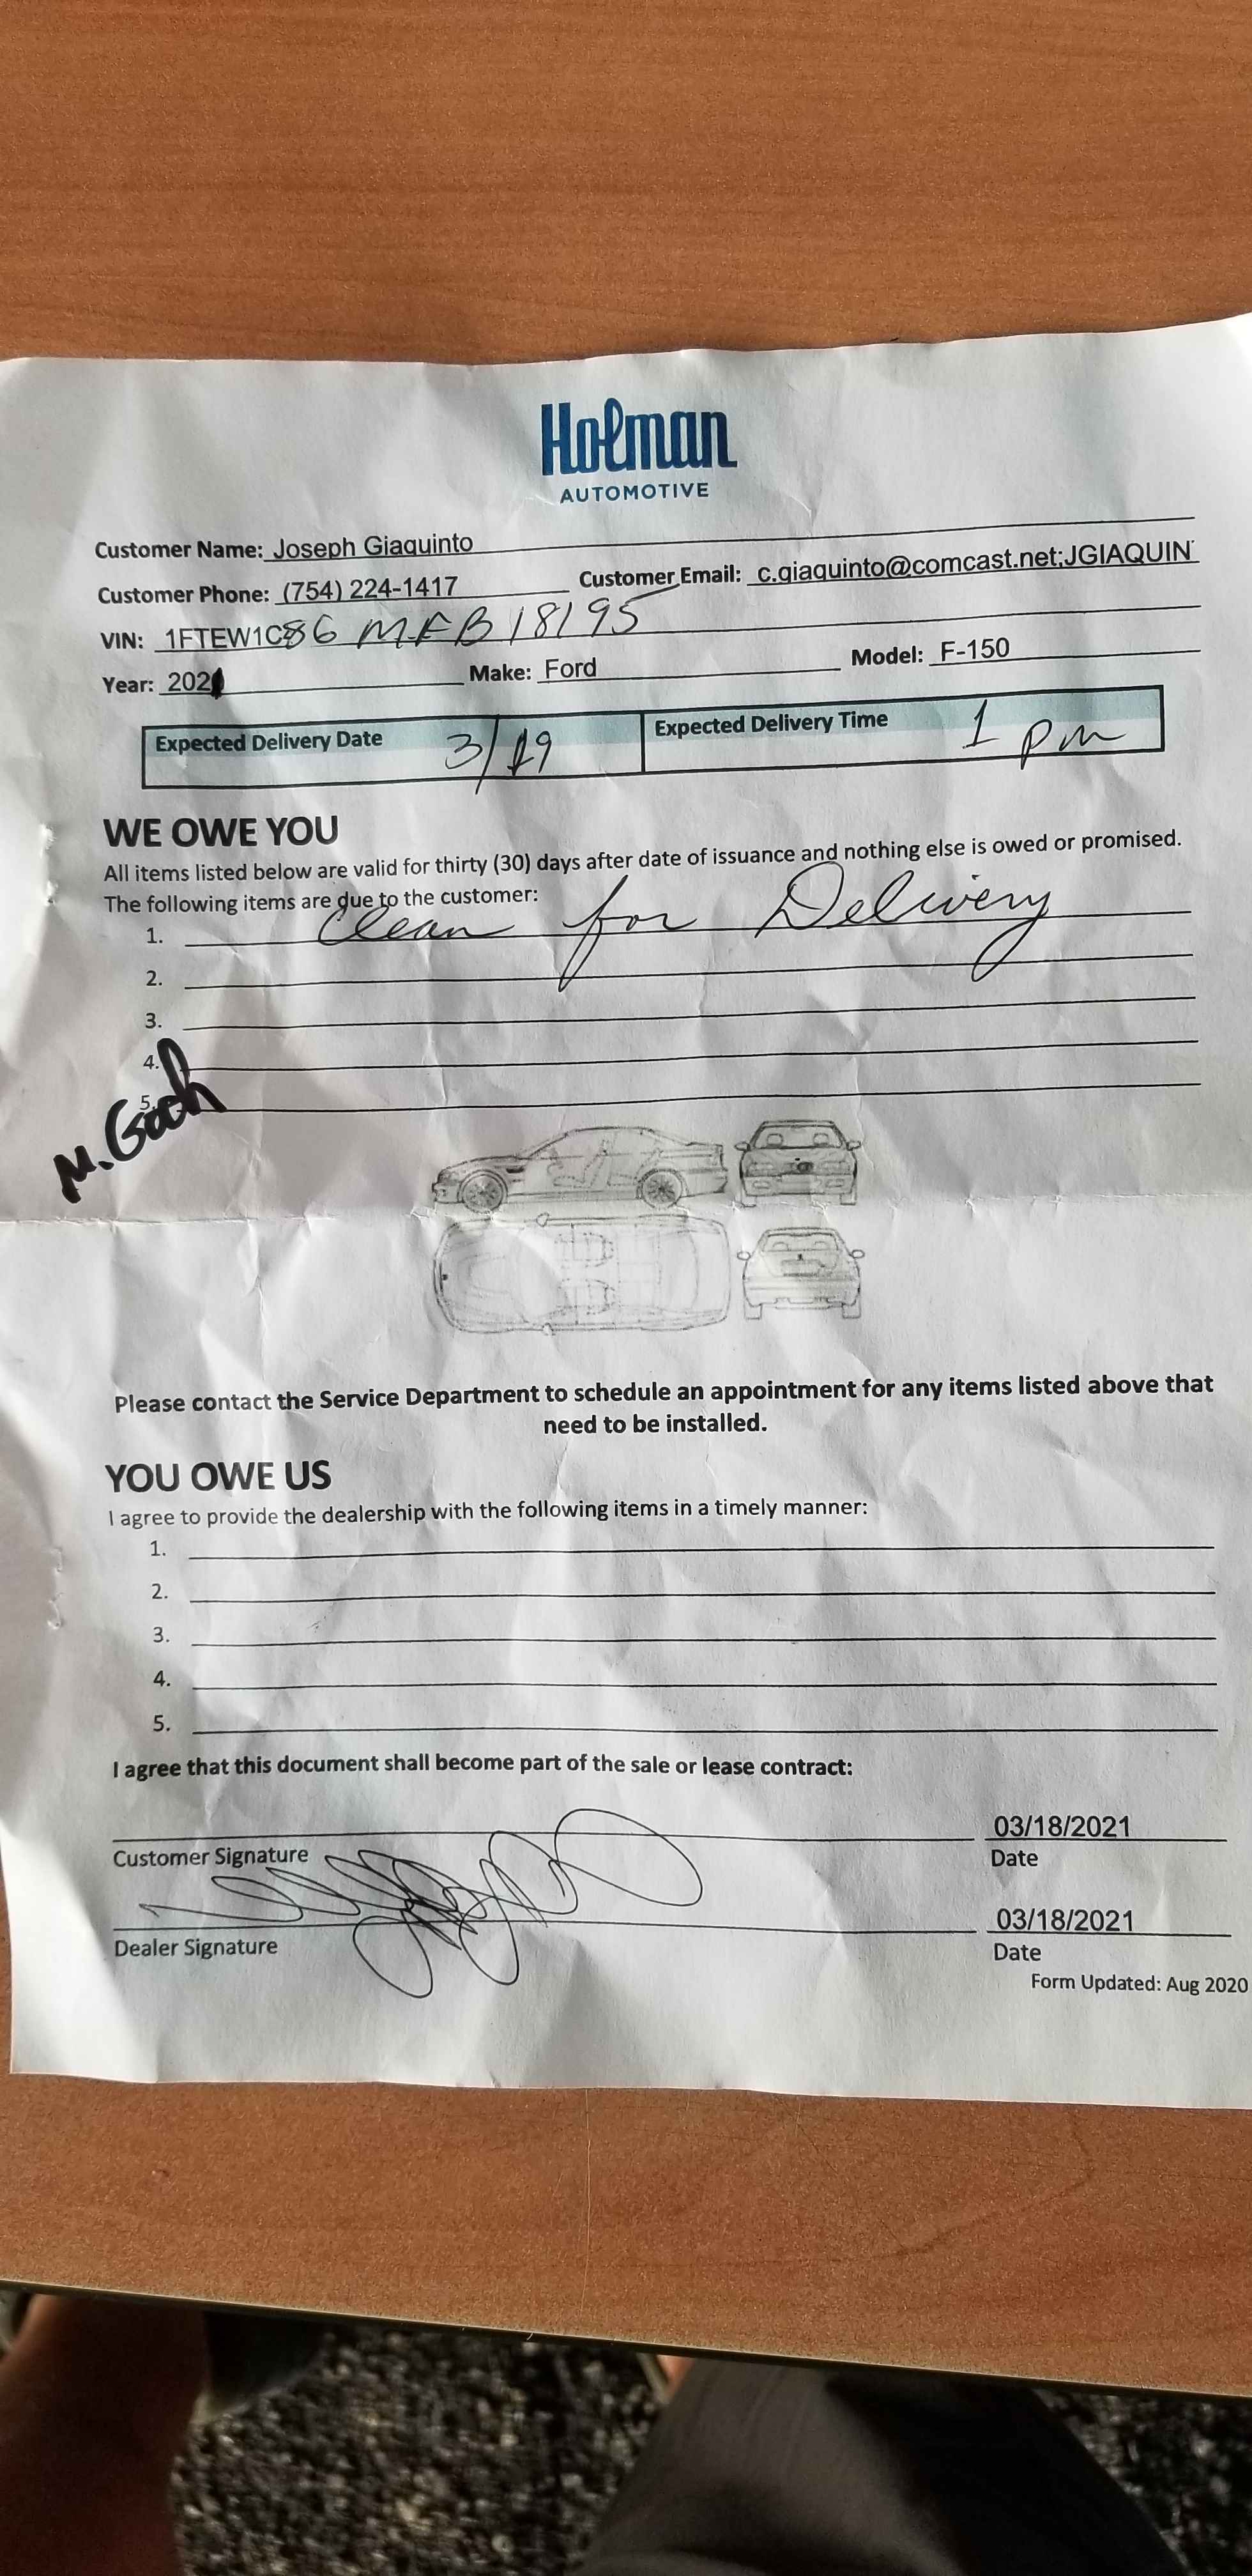 Holman
AUTOMOTIVE
Customer Name: Joseph Giaquinto
Customer Phone: (754) 224-1417 Customer Email: c.giaquinto@comcast.net;JGIAQUIN
VIN: 1FTEW1C86 MFB18195
Year: 2021 Make: Ford Model: F-150
Expected Delivery Date 3/19 Expected Delivery Time 1 pm
WE OWE YOU
All items listed below are valid for thirty (30) days after date of issuance and nothing else is owed or promised.
The following items are due to the customer:
1. Clean for Delivery
2.
3.
4.
5.
M.
Please contact the Service Department to schedule an appointment for any items listed above that
need to be installed.
YOU OWE US
I agree to provide the dealership with the following items in a timely manner:
1.
2.
3.
4.
5.
I agree that this document shall become part of the sale or lease contract:
03/18/2021
Customer Signature Date
03/18/2021
Dealer Signature Date
Form Updated: Aug 2020